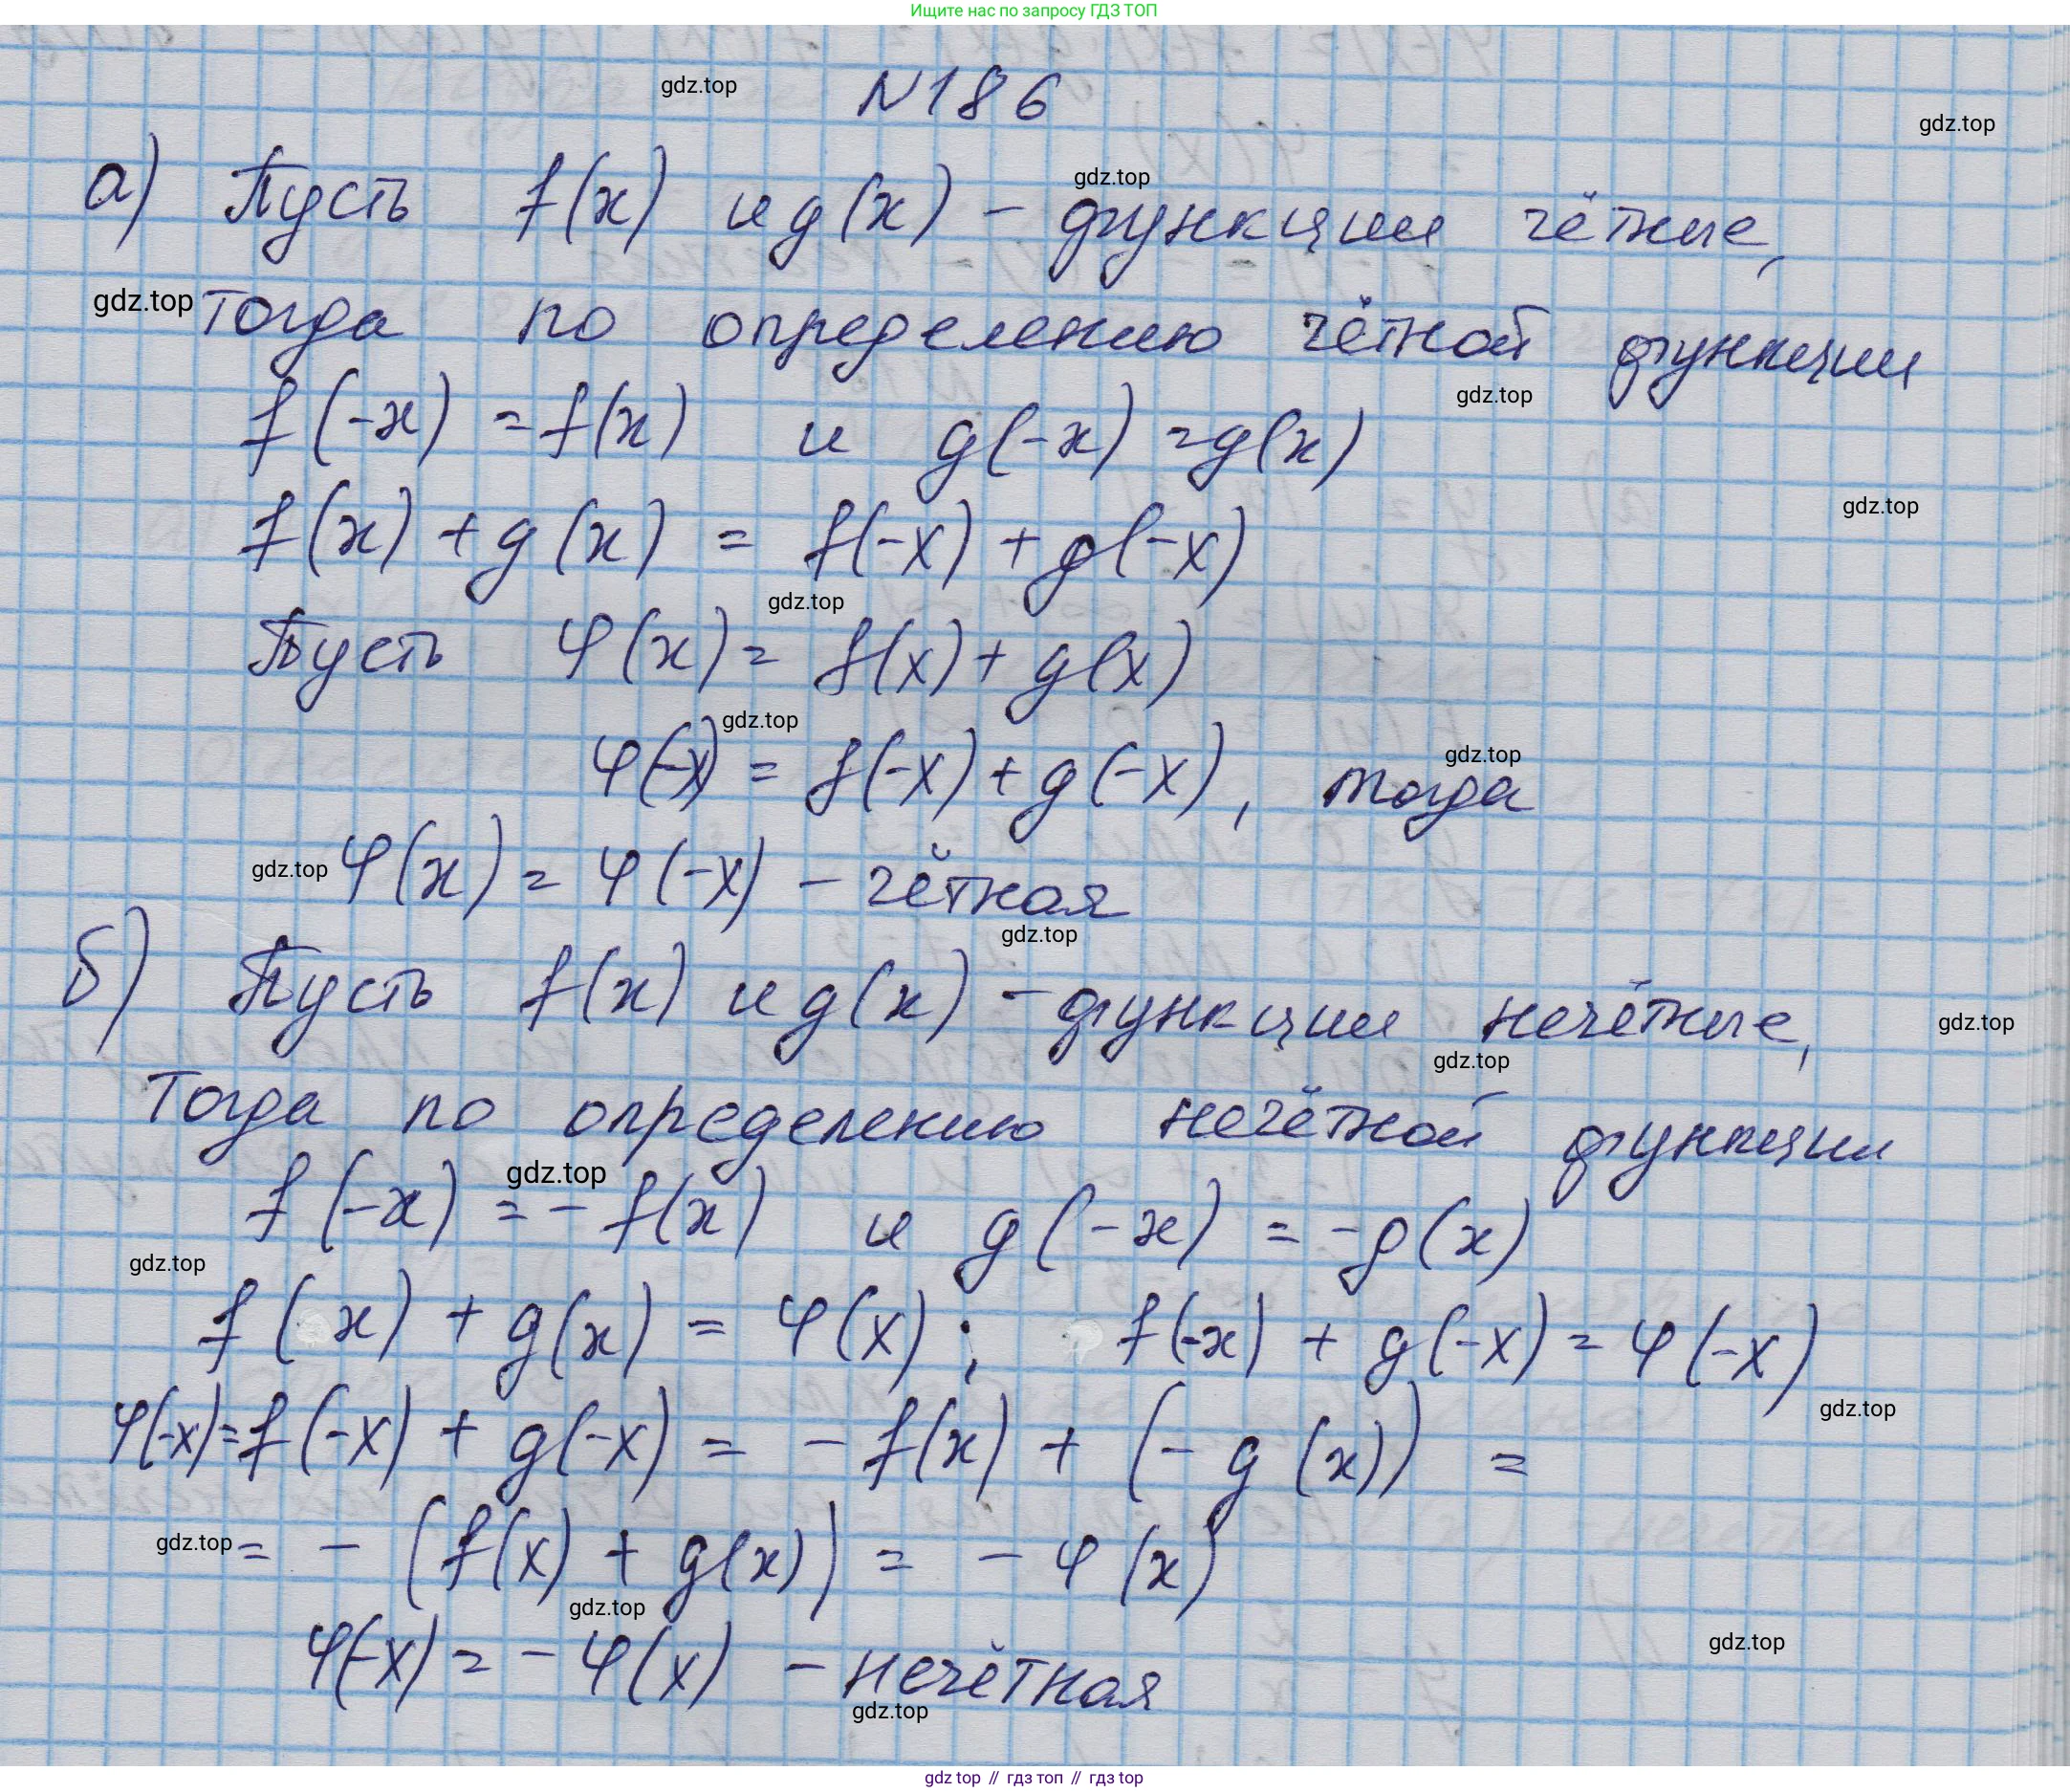 Ищите нас по запросу ГДЗ ТОП
gdz.top
N186
gdz.top
а) Пусть f(x) и g(x) - функции чётные,
gdz.top
gdz.top тогда по определению чётной функции
f(-x) = f(x) и g(-x) = g(x)
gdz.top
f(x) + g(x) = f(-x) + g(-x)
gdz.top
gdz.top
Пусть φ(x) = f(x) + g(x)
gdz.top
φ(-x) = f(-x) + g(-x), тогда
gdz.top
gdz.top φ(x) = φ(-x) - чётная
gdz.top
б) Пусть f(x) и g(x) - функции нечётные,
gdz.top
gdz.top
Тогда по определению нечётной функции
gdz.top
f(-x) = - f(x) и g(-x) = -g(x)
gdz.top
f(x) + g(x) = φ(x); f(-x) + g(-x) = φ(-x)
gdz.top
φ(-x) = f(-x) + g(-x) = - f(x) + (- g(x)) =
gdz.top = - (f(x) + g(x)) = - φ(x)
gdz.top
φ(-x) = - φ(x) - нечётная
gdz.top
gdz.top
gdz top // гдз топ // гдз top